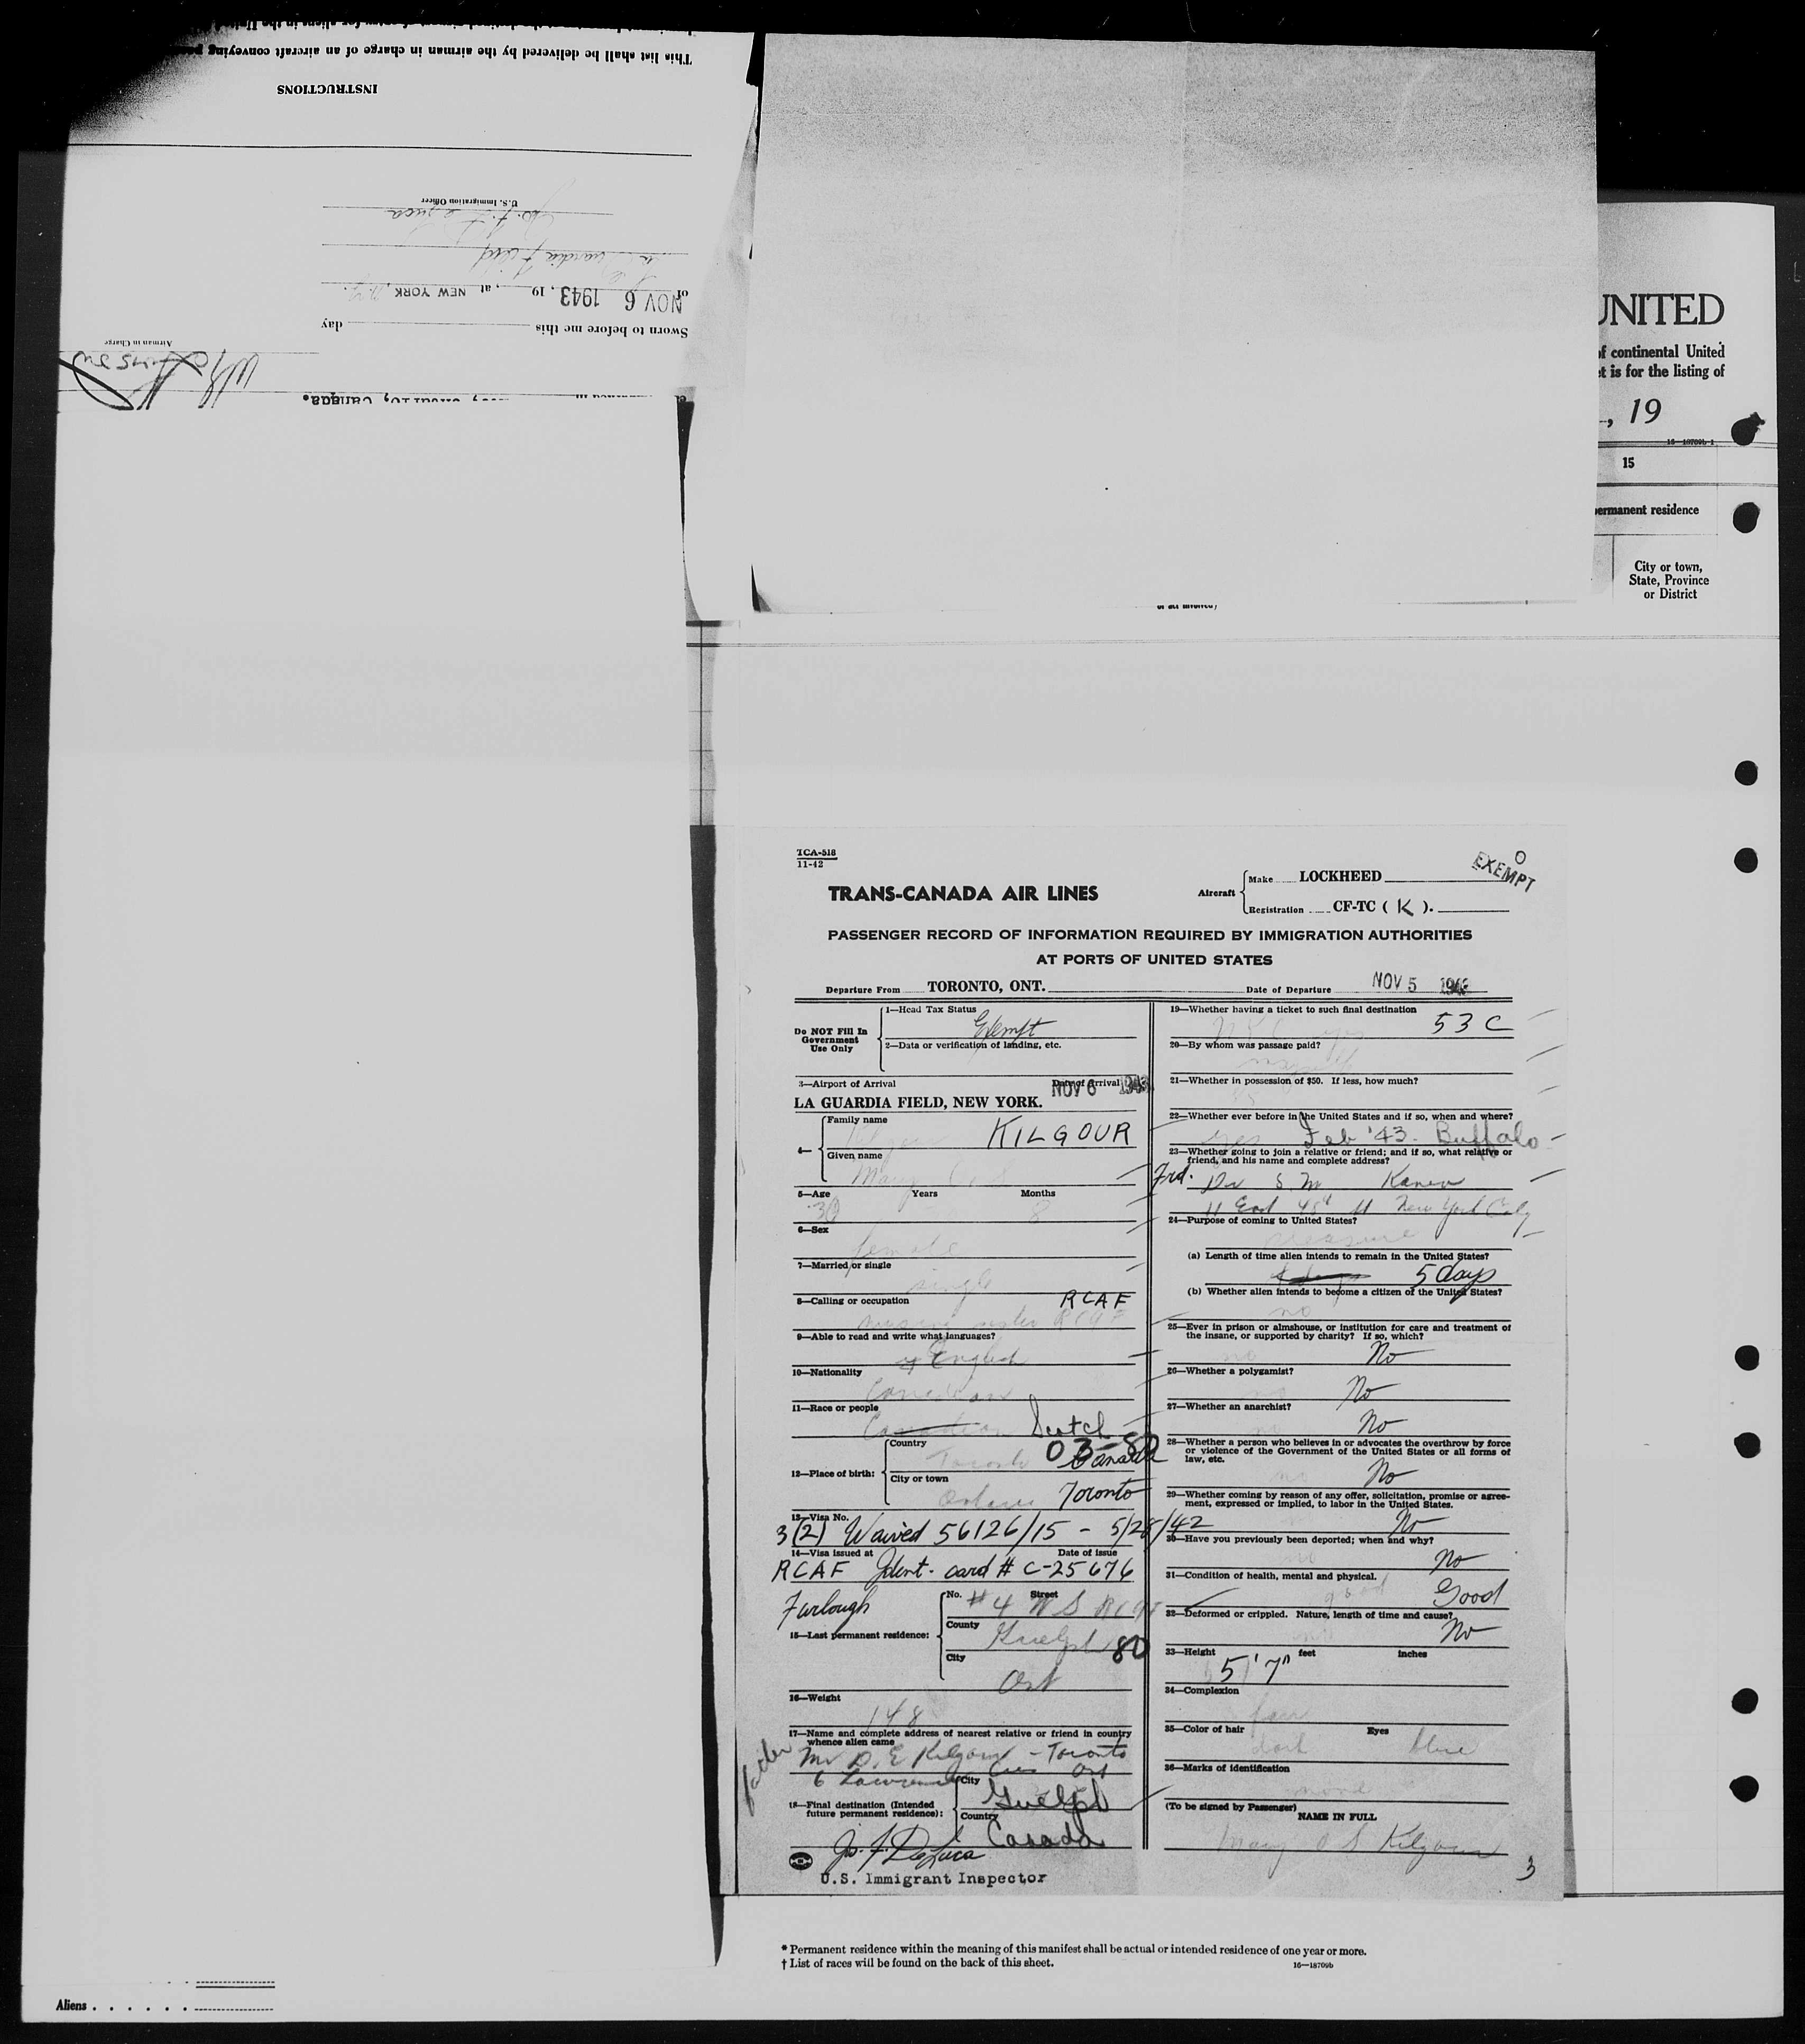 This list shall be delivered by the airman in charge of an aircraft conveying
INSTRUCTIONS
U.S. Immigration Officer
of NOV 6 1943, 19 , at NEW YORK, N.Y.
Sworn to before me this day
Airman in Charge
Canada.
UNITED
of continental United
et is for the listing of
, 19
16—18709b-1
15
permanent residence
City or town,
State, Province
or District
TCA-518
11-42
EXEMPT
TRANS-CANADA AIR LINES
Aircraft
Make LOCKHEED
Registration CF-TC ( K ).
PASSENGER RECORD OF INFORMATION REQUIRED BY IMMIGRATION AUTHORITIES
AT PORTS OF UNITED STATES
Departure From TORONTO, ONT. Date of Departure NOV 5 1943
Do NOT Fill In
Government
Use Only
1—Head Tax Status
Exempt
2—Data or verification of landing, etc.
3—Airport of Arrival Date of Arrival
LA GUARDIA FIELD, NEW YORK. NOV 6 1943
4—
Family name
KILGOUR
Given name
Mary O. S
5—Age Years Months
30 8
6—Sex
female
7—Married or single
single
8—Calling or occupation RCAF
nursing sister RCAF
9—Able to read and write what languages?
English
10—Nationality
Canadian
11—Race or people
Canadian Scotch
03-80
12—Place of birth:
Country
Toronto Canada
City or town
Ontario Toronto
13—Visa No.
3(2) Waived 56126/15 - 5/25/42
14—Visa issued at Date of issue
RCAF Ident. card # C-25676
Furlough
15—Last permanent residence:
No. Street
#4 W S RCAF
County
Guelph 80
City
Ont
16—Weight
148
17—Name and complete address of nearest relative or friend in country
whence alien came
father
Mr D. E Kilgour - Toronto
6 Lawrence Cres Ont
18—Final destination (Intended
future permanent residence):
City
Guelph
Country
Canada
Jos. F. DeLuca
U.S. Immigrant Inspector
19—Whether having a ticket to such final destination
yes 53 C
20—By whom was passage paid?
myself
21—Whether in possession of $50. If less, how much?
22—Whether ever before in the United States and if so, when and where?
yes Feb '43 - Buffalo
23—Whether going to join a relative or friend; and if so, what relative or
friend, and his name and complete address?
Frd. Dr S. M
11 East 48th St New York City
24—Purpose of coming to United States?
pleasure
(a) Length of time alien intends to remain in the United States?
5 days
(b) Whether alien intends to become a citizen of the United States?
no
25—Ever in prison or almshouse, or institution for care and treatment of
the insane, or supported by charity? If so, which?
no No
26—Whether a polygamist?
no No
27—Whether an anarchist?
no No
28—Whether a person who believes in or advocates the overthrow by force
or violence of the Government of the United States or all forms of
law, etc.
no No
29—Whether coming by reason of any offer, solicitation, promise or agree-
ment, expressed or implied, to labor in the United States.
No
30—Have you previously been deported; when and why?
no No
31—Condition of health, mental and physical.
good Good
32—Deformed or crippled. Nature, length of time and cause?
no No
33—Height feet inches
5' 7"
34—Complexion
fair
35—Color of hair Eyes
dark blue
36—Marks of identification
none
(To be signed by Passenger)
NAME IN FULL
Mary O S Kilgour
3
* Permanent residence within the meaning of this manifest shall be actual or intended residence of one year or more.
† List of races will be found on the back of this sheet.
16—18709b
Aliens